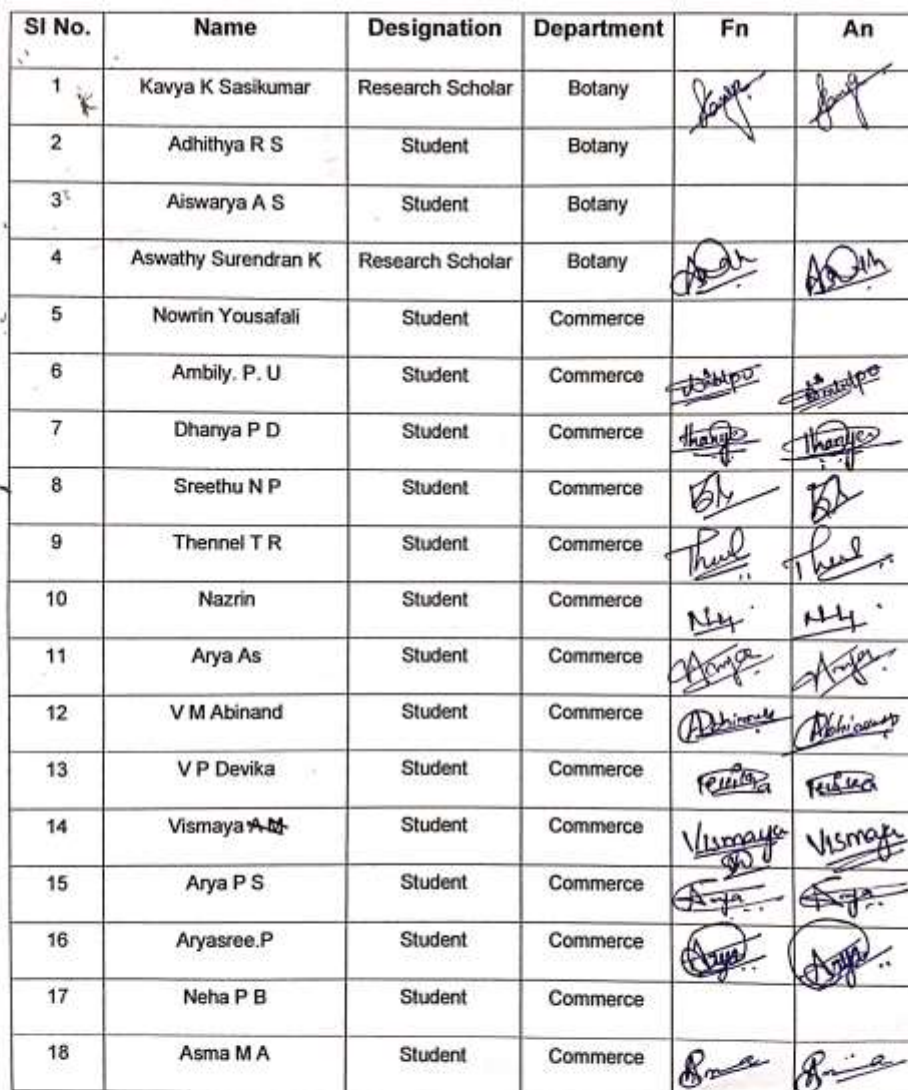 SI No. Name Designation Department Fn An
1 Kavya K Sasikumar Research Scholar Botany
2 Adhithya R S Student Botany
3 Aiswarya A S Student Botany
4 Aswathy Surendran K Research Scholar Botany
5 Nowrin Yousafali Student Commerce
6 Ambily. P. U Student Commerce
7 Dhanya P D Student Commerce
8 Sreethu N P Student Commerce
9 Thennel T R Student Commerce
10 Nazrin Student Commerce
11 Arya As Student Commerce
12 V M Abinand Student Commerce
13 V P Devika Student Commerce
14 Vismaya Student Commerce Vismaya Vismaya
15 Arya P S Student Commerce Arya Arya
16 Aryasree.P Student Commerce Arya Arya
17 Neha P B Student Commerce
18 Asma M A Student Commerce